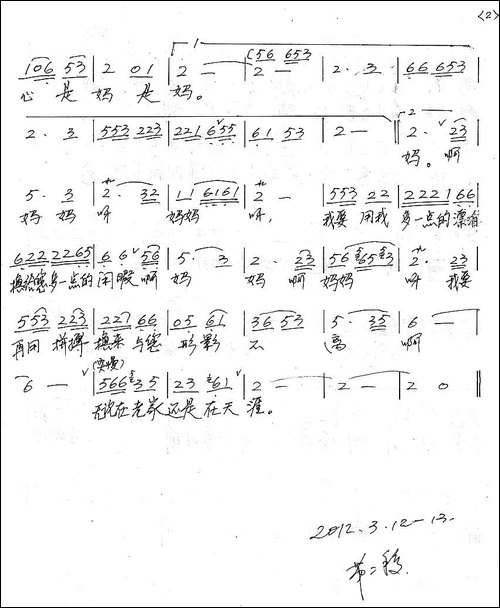 <2>
1
(56 653
106 53 | 2 01 | 2 — | 2 — | 2· 3 | 66 653 |
心 是 妈 是 妈。
2· 3 | 553 223 | 221 655 | 61 53 | 2 — || 2· 23 |
妈。啊
5· 3 | 2· 32 | 11 6161 | 2 — | 553 22 | 2221 66 |
妈 妈 呀 妈妈 呀, 我要 用我 多一点的
622 2265 | 66 56 | 5· 3 | 2· 23 | 56 653 | 2· 23 |
多一点的 闲暇 啊 妈 妈 啊 妈妈 呀 我要
553 223 | 221 66 | 05 61 | 36 53 | 5· 35 | 6 — |
再用 拼搏 换来 与您 形影 不 离 啊
6 — | 566 35 | 23 61 | 2 — | 2 — | 2 0 ||
在老家 还是 在天 涯。
2012.3.12—13.
第二稿.